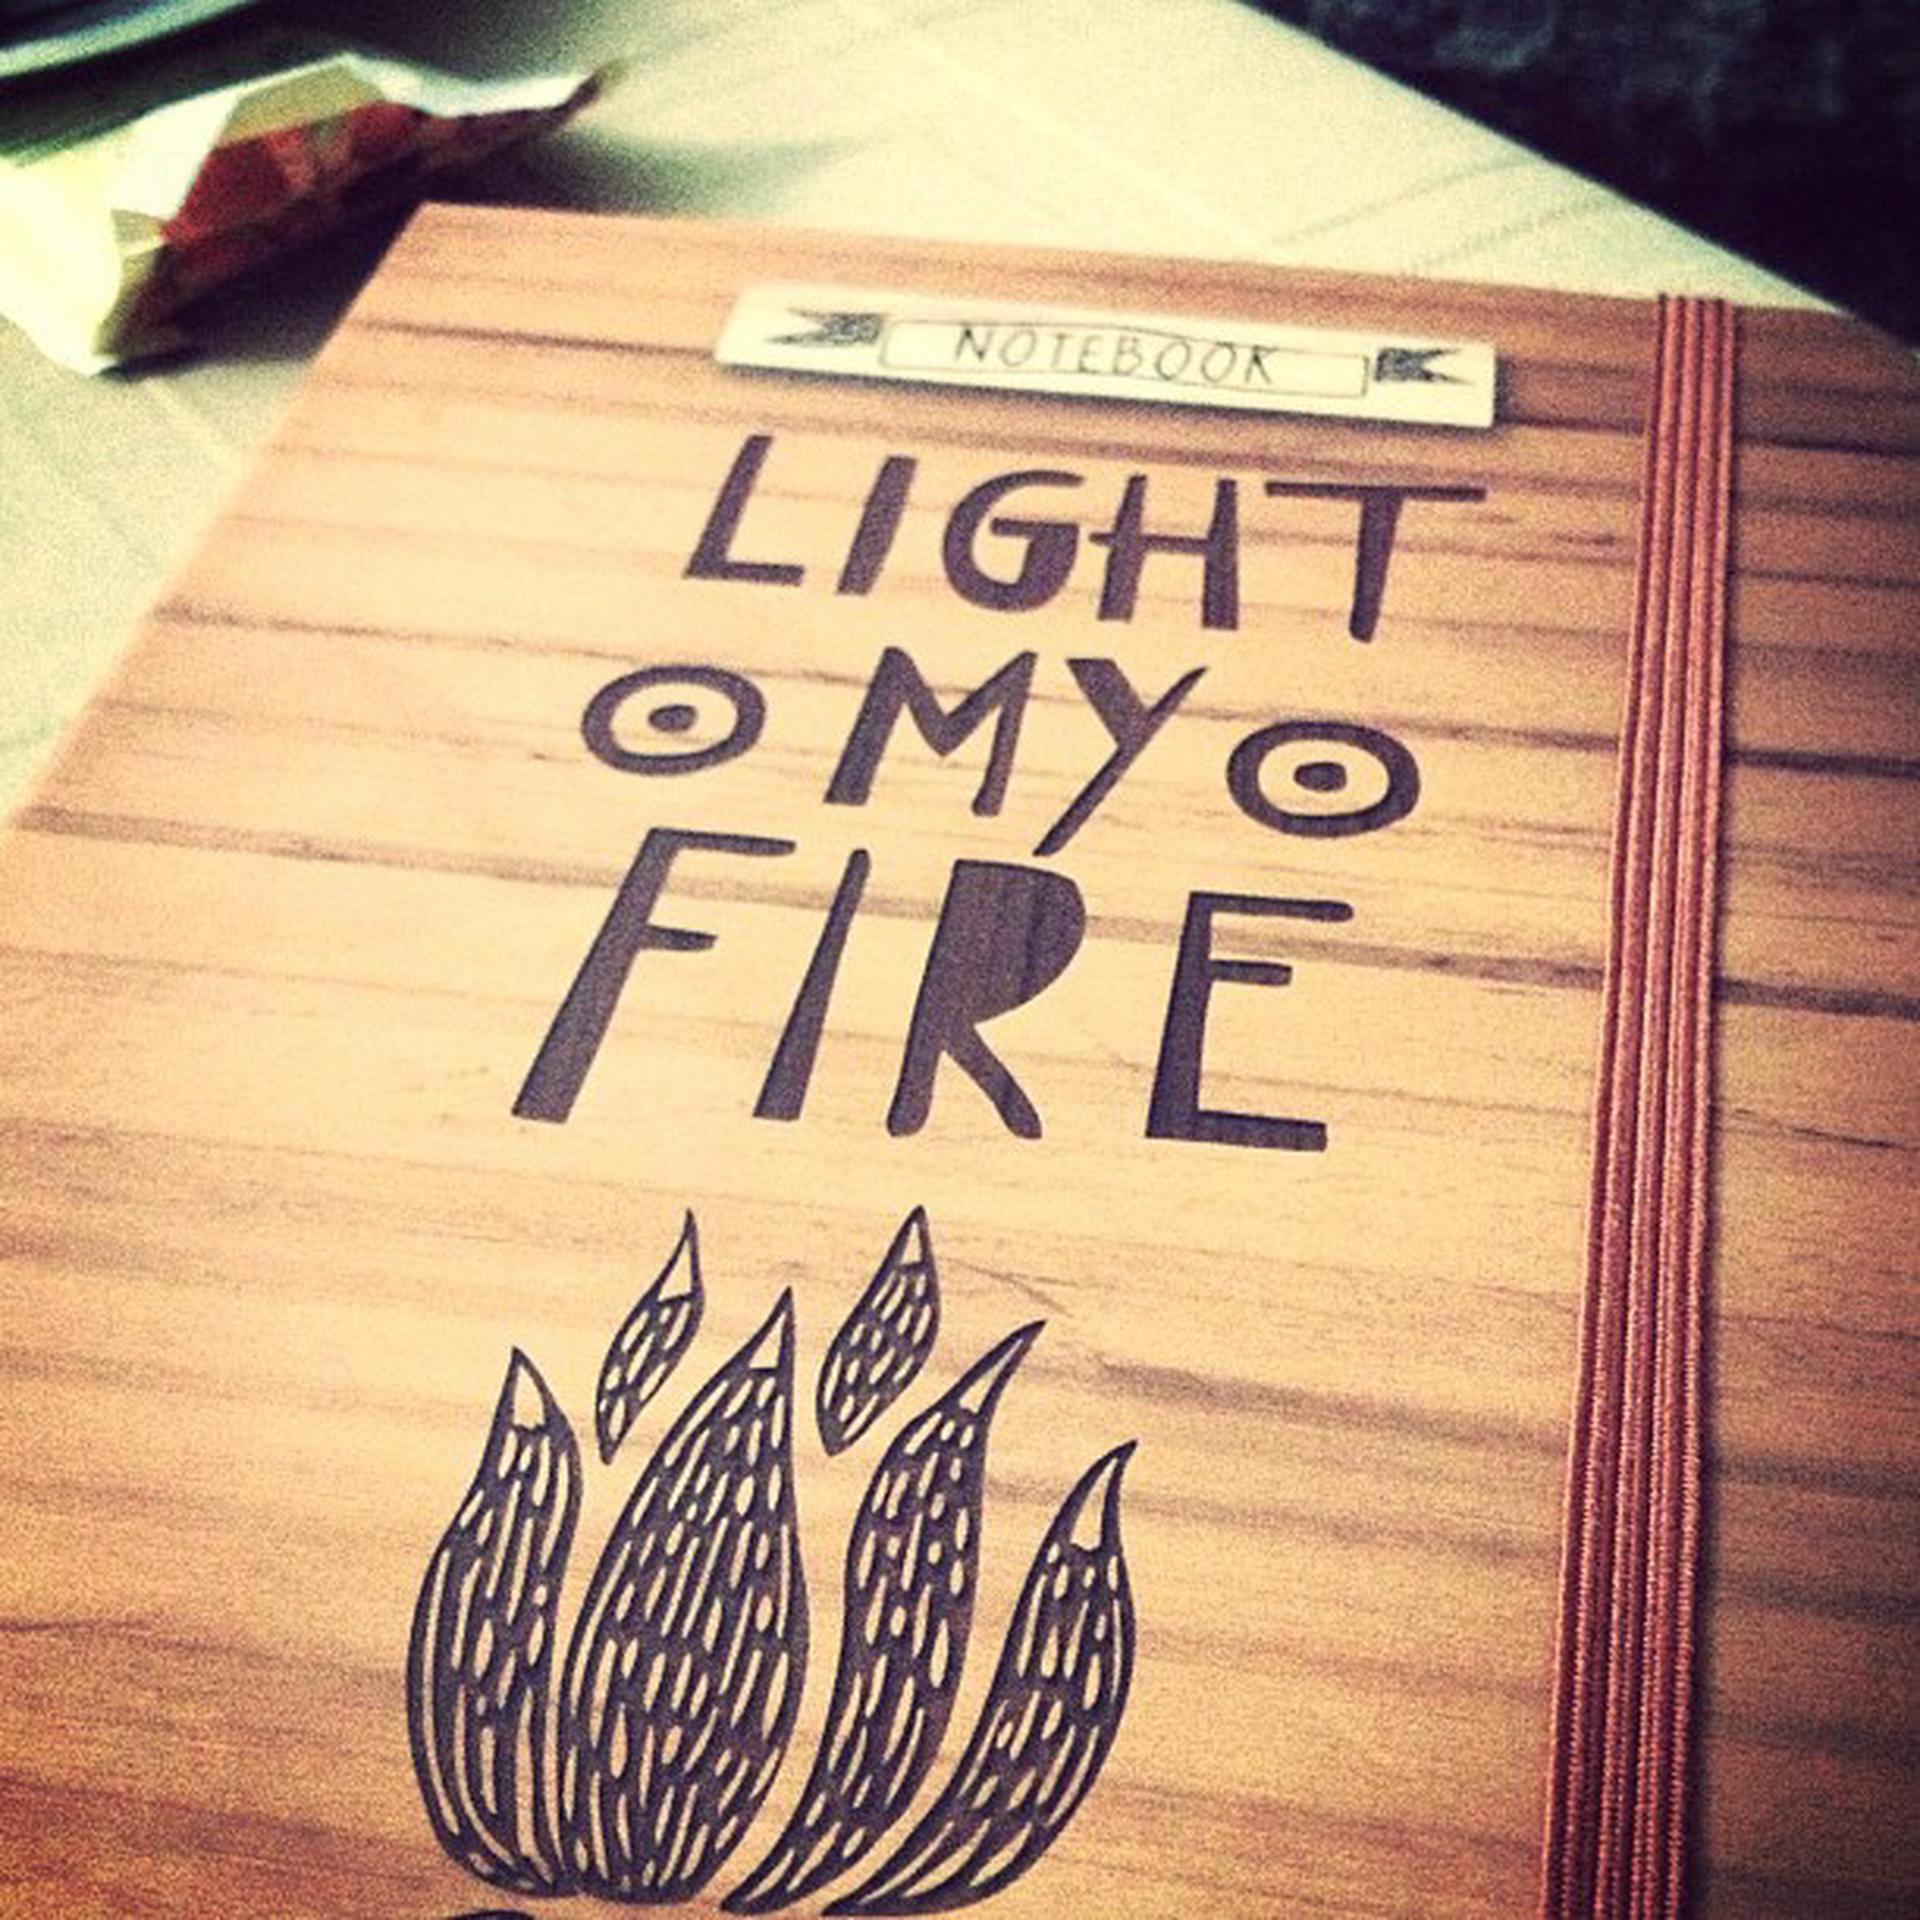 NOTEBOOK
LIGHT
MY
FIRE